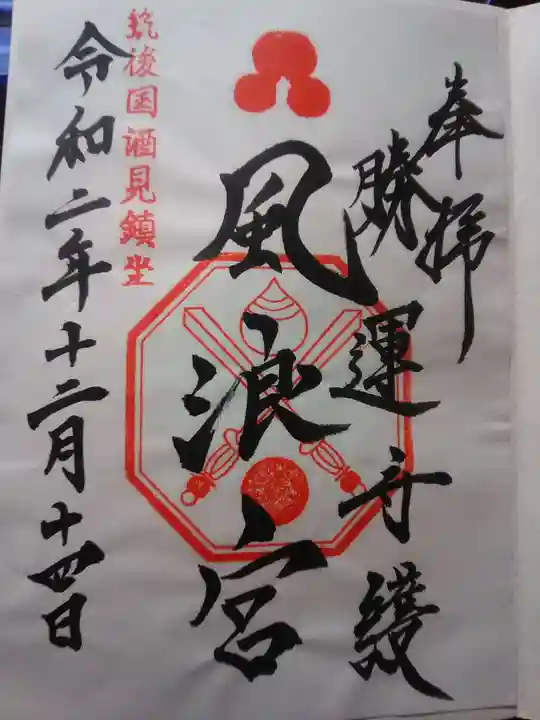 奉拝
勝運守護
風浪宮
筑後国酒見鎮坐
令和二年十二月十四日